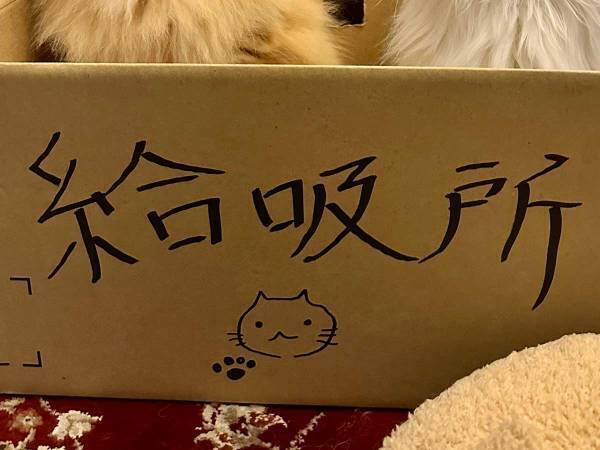 給吸所